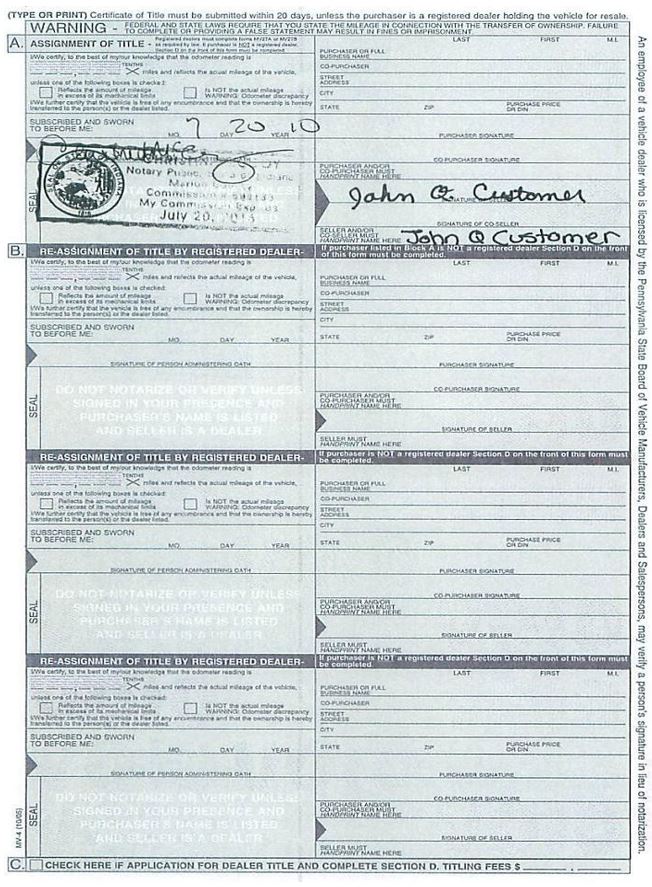 (TYPE OR PRINT) Certificate of Title must be submitted within 20 days, unless the purchaser is a registered dealer holding the vehicle for resale.
WARNING - FEDERAL AND STATE LAWS REQUIRE THAT YOU STATE THE MILEAGE IN CONNECTION WITH THE TRANSFER OF OWNERSHIP. FAILURE
TO COMPLETE OR PROVIDING A FALSE STATEMENT MAY RESULT IN FINES OR IMPRISONMENT.
A. ASSIGNMENT OF TITLE - Registered dealers must complete forms MV27A or MV27B
as required by law. If purchaser is NOT a registered dealer,
Section D on the front of this form must be completed.
I/We certify, to the best of my/our knowledge that the odometer reading is
TENTHS
miles and reflects the actual mileage of the vehicle,
unless one of the following boxes is checked:
Reflects the amount of mileage
in excess of its mechanical limits
Is NOT the actual mileage
WARNING: Odometer discrepancy
I/We further certify that the vehicle is free of any encumbrance and that the ownership is hereby
transferred to the person(s) or the dealer listed.
SUBSCRIBED AND SWORN
TO BEFORE ME:
7 20 10
MO. DAY YEAR
SEAL
Notary Public,
Marion
Commission #
My Commission
July 20,
LAST FIRST M.I.
PURCHASER OR FULL
BUSINESS NAME
CO-PURCHASER
STREET
ADDRESS
CITY
STATE ZIP PURCHASE PRICE
OR DIN
PURCHASER SIGNATURE
CO-PURCHASER SIGNATURE
PURCHASER AND/OR
CO-PURCHASER MUST
HANDPRINT NAME HERE
John Q Customer
SIGNATURE OF SELLER
SIGNATURE OF CO-SELLER
SELLER AND/OR
CO-SELLER MUST
HANDPRINT NAME HERE
John Q Customer
B. RE-ASSIGNMENT OF TITLE BY REGISTERED DEALER- If purchaser listed in Block A is NOT a registered dealer Section D on the front
of this form must be completed.
I/We certify, to the best of my/our knowledge that the odometer reading is
TENTHS
miles and reflects the actual mileage of the vehicle,
unless one of the following boxes is checked:
Reflects the amount of mileage
in excess of its mechanical limits
Is NOT the actual mileage
WARNING: Odometer discrepancy
I/We further certify that the vehicle is free of any encumbrance and that the ownership is hereby
transferred to the person(s) or the dealer listed.
SUBSCRIBED AND SWORN
TO BEFORE ME:
MO. DAY YEAR
SIGNATURE OF PERSON ADMINISTERING OATH
SEAL
DO NOT NOTARIZE OR VERIFY UNLESS
SIGNED IN YOUR PRESENCE AND
PURCHASER'S NAME IS LISTED
AND SELLER IS A DEALER
LAST FIRST M.I.
PURCHASER OR FULL
BUSINESS NAME
CO-PURCHASER
STREET
ADDRESS
CITY
STATE ZIP PURCHASE PRICE
OR DIN
PURCHASER SIGNATURE
CO-PURCHASER SIGNATURE
PURCHASER AND/OR
CO-PURCHASER MUST
HANDPRINT NAME HERE
SIGNATURE OF SELLER
SELLER MUST
HANDPRINT NAME HERE
RE-ASSIGNMENT OF TITLE BY REGISTERED DEALER- If purchaser is NOT a registered dealer Section D on the front of this form must
be completed.
I/We certify, to the best of my/our knowledge that the odometer reading is
TENTHS
miles and reflects the actual mileage of the vehicle,
unless one of the following boxes is checked:
Reflects the amount of mileage
in excess of its mechanical limits
Is NOT the actual mileage
WARNING: Odometer discrepancy
I/We further certify that the vehicle is free of any encumbrance and that the ownership is hereby
transferred to the person(s) or the dealer listed.
SUBSCRIBED AND SWORN
TO BEFORE ME:
MO. DAY YEAR
SIGNATURE OF PERSON ADMINISTERING OATH
SEAL
DO NOT NOTARIZE OR VERIFY UNLESS
SIGNED IN YOUR PRESENCE AND
PURCHASER'S NAME IS LISTED
AND SELLER IS A DEALER
LAST FIRST M.I.
PURCHASER OR FULL
BUSINESS NAME
CO-PURCHASER
STREET
ADDRESS
CITY
STATE ZIP PURCHASE PRICE
OR DIN
PURCHASER SIGNATURE
CO-PURCHASER SIGNATURE
PURCHASER AND/OR
CO-PURCHASER MUST
HANDPRINT NAME HERE
SIGNATURE OF SELLER
SELLER MUST
HANDPRINT NAME HERE
RE-ASSIGNMENT OF TITLE BY REGISTERED DEALER- If purchaser is NOT a registered dealer Section D on the front of this form must
be completed.
I/We certify, to the best of my/our knowledge that the odometer reading is
TENTHS
miles and reflects the actual mileage of the vehicle,
unless one of the following boxes is checked:
Reflects the amount of mileage
in excess of its mechanical limits
Is NOT the actual mileage
WARNING: Odometer discrepancy
I/We further certify that the vehicle is free of any encumbrance and that the ownership is hereby
transferred to the person(s) or the dealer listed.
SUBSCRIBED AND SWORN
TO BEFORE ME:
MO. DAY YEAR
SIGNATURE OF PERSON ADMINISTERING OATH
SEAL
DO NOT NOTARIZE OR VERIFY UNLESS
SIGNED IN YOUR PRESENCE AND
PURCHASER'S NAME IS LISTED
AND SELLER IS A DEALER
LAST FIRST M.I.
PURCHASER OR FULL
BUSINESS NAME
CO-PURCHASER
STREET
ADDRESS
CITY
STATE ZIP PURCHASE PRICE
OR DIN
PURCHASER SIGNATURE
CO-PURCHASER SIGNATURE
PURCHASER AND/OR
CO-PURCHASER MUST
HANDPRINT NAME HERE
SIGNATURE OF SELLER
SELLER MUST
HANDPRINT NAME HERE
MV-4 (10/05)
C. CHECK HERE IF APPLICATION FOR DEALER TITLE AND COMPLETE SECTION D. TITLING FEES $
An employee of a vehicle dealer who is licensed by the Pennsylvania State Board of Vehicle Manufacturers, Dealers and Salespersons, may verify a person's signature in lieu of notarization.